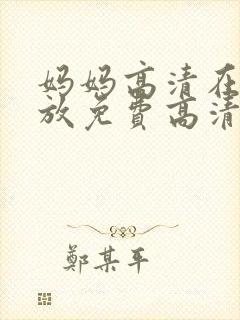 妈妈高清在
放免费高清
鄭某平